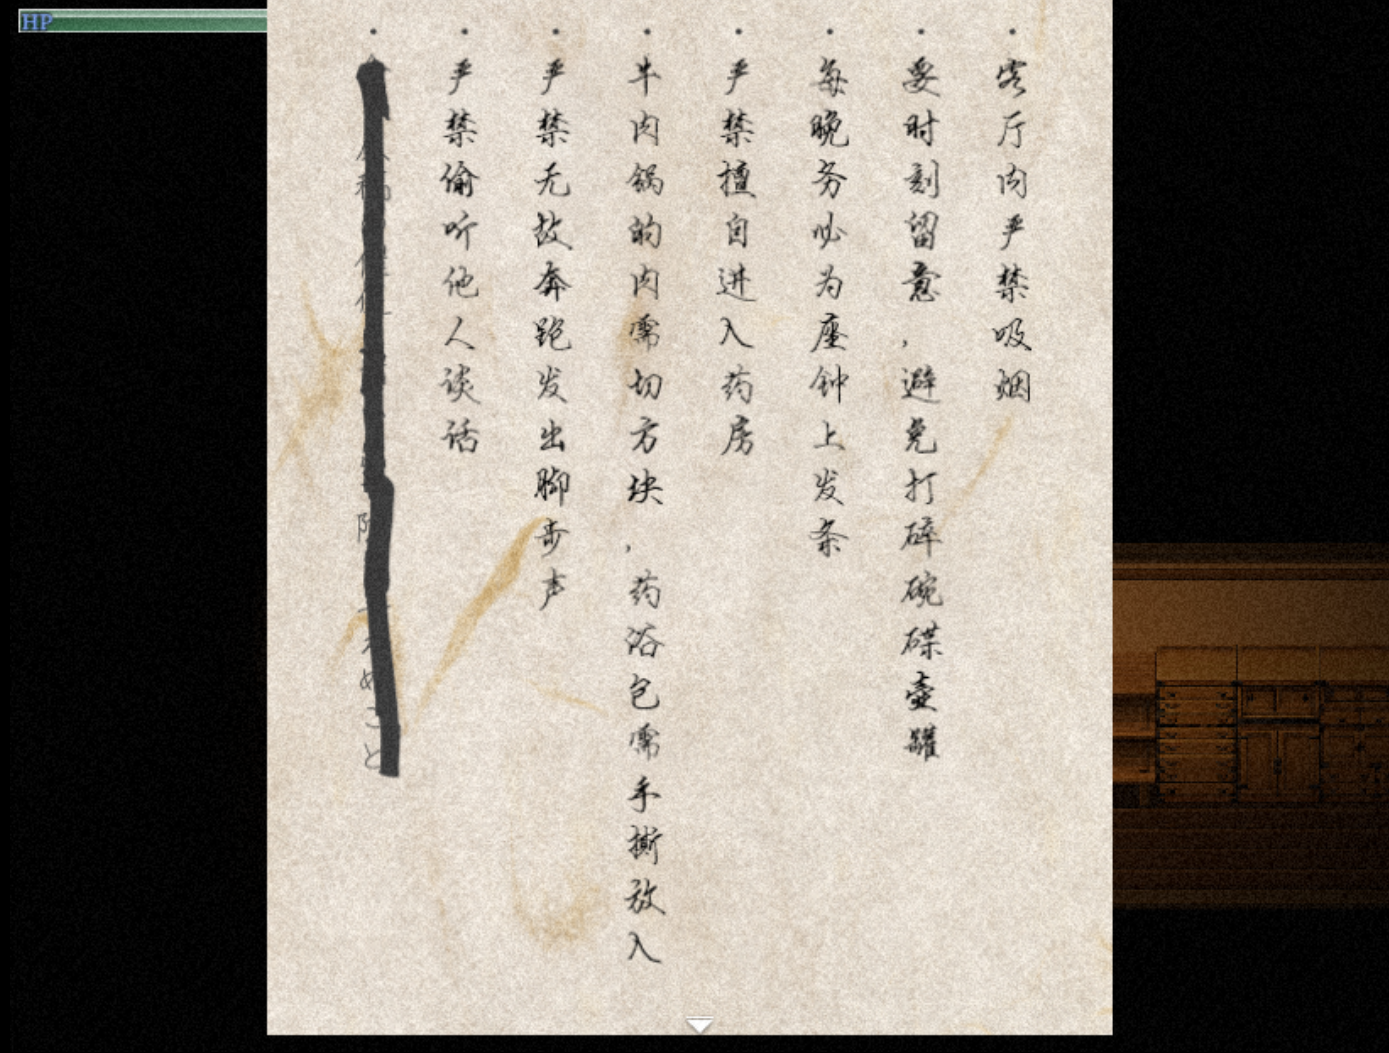 HP
・客厅内严禁吸烟
・要时刻留意，避免打碎碗碟壶罐
・每晚务必为座钟上发条
・严禁擅自进入药房
・牛肉锅的肉需切方块，药浴包需手撕放入
・严禁无故奔跑发出脚步声
・严禁偷听他人谈话